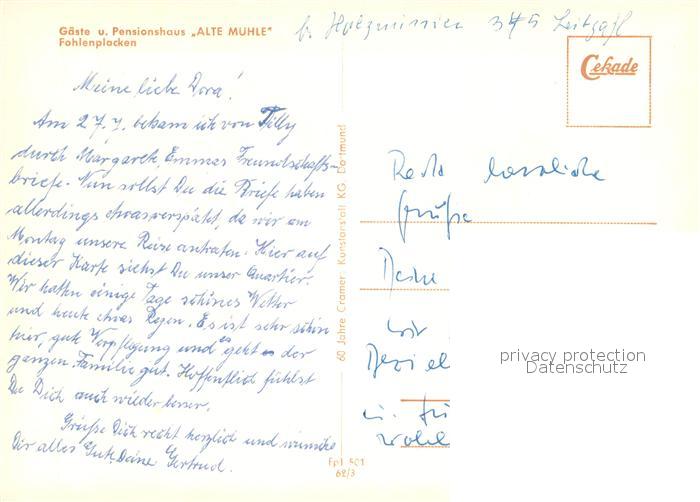 Gäste u. Pensionshaus „ALTE MÜHLE"
Fohlenplacken
b. Holzminden
Cekade
Meine liebe Dora!
Am 27.7. bekam ich von Tilly
durch Margarete Emmas Freundschafts-
briefe. Nun sollst Du die Briefe haben
allerdings etwas verspätet, da wir am
Montag unsere Reise antraten. Hier auf
dieser Karte siehst Du unser Quartier.
Wir hatten einige Tage schönes Wetter
und heute etwas Regen. Es ist sehr schön
hier, gute Verpflegung und es geht der
ganzen Familie gut. Hoffentlich fühlst
Du Dich auch wieder besser.
Grüße Dich recht herzlich und wünsche
Dir alles Gute, Deine Gertrud.
60 Jahre Cramers Kunstanstalt KG. Dortmund
Fpl 501
62/3
Recht herzliche
Grüße
Deine
wir
u. für
wohl
privacy protection
Datenschutz